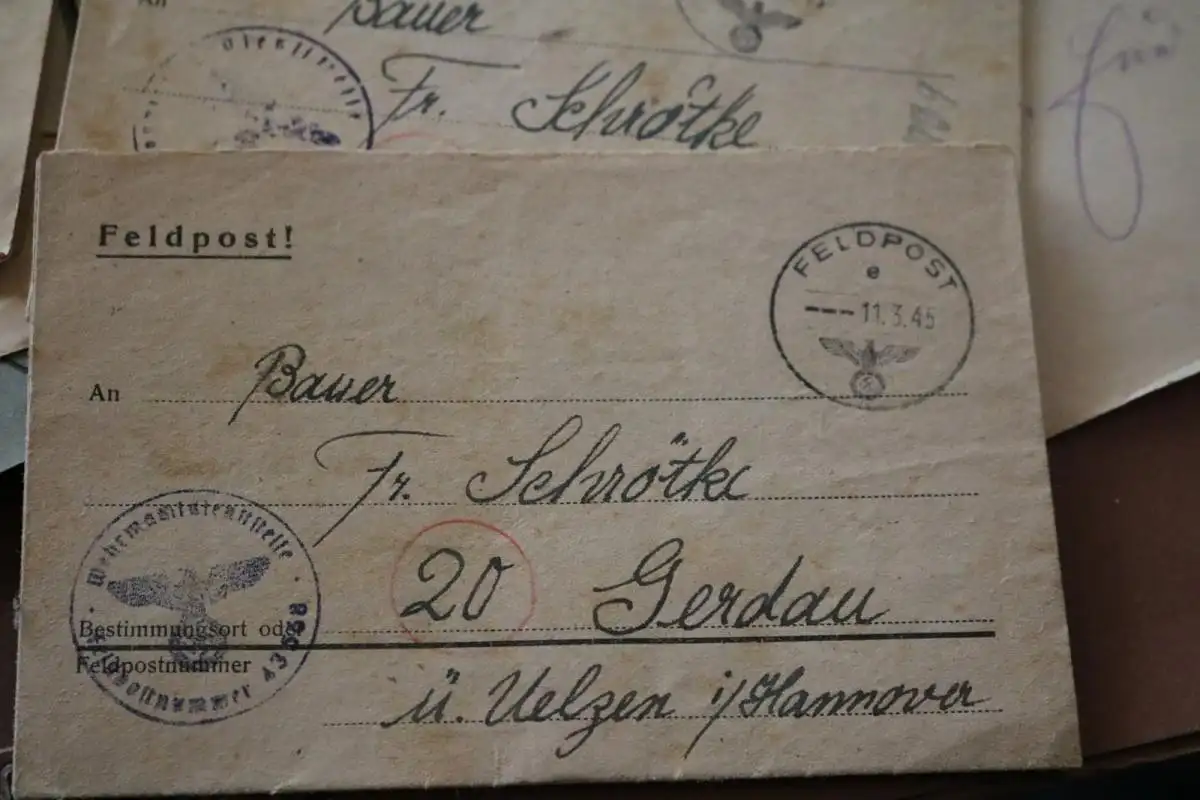 An Bauer
Fr. Schrötke
Feldpost!
FELDPOST
e
--- 11.3.45
An Bauer
Fr. Schrötke
20 Gerdau
Bestimmungsort oder
Feldpostnummer
ü. Uelzen i/Hannover
Feldpostnummer